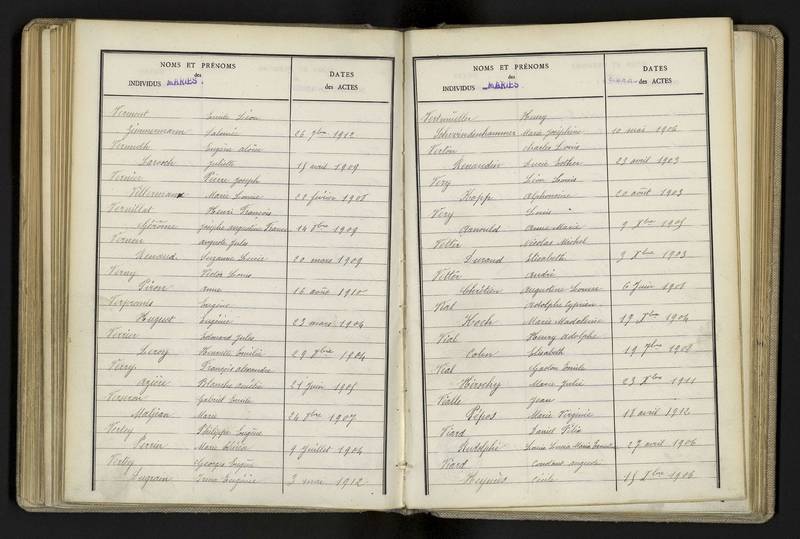 NOMS ET PRÉNOMS
des
INDIVIDUS MARIÉS.
DATES
des ACTES
Vermont Emile Léon
Zimmermann Salomé 26 7bre 1912
Vermuth Eugène aloïse
Larosch Juliette 15 avril 1909
Vernier Pierre Joseph
Villermaux Marie Louise 22 février 1908
Vernillat Henri François
Gérôme Josèphe augustine France 14 8bre 1909
Vernoir auguste Jules
Renaud Suzanne Lucie 20 mars 1909
Verny Victor Louis
Piron anne 16 août 1910
Verpromis Eugène
Huguet Eugénie 23 mars 1904
Verrier Edmond Jules
Leroy Henriette Emilie 29 Xbre 1904
Verry François alexandre
Azière Blanche amélie 21 Juin 1905
Gabriel Emile
Maljean Marie 24 8bre 1907
Verley Philippe Eugène
Perrin Marie 9 Juillet 1904
Verley Georges Eugène
Eugénie 3 mai 1912
NOMS ET PRÉNOMS
des
INDIVIDUS MARIÉS.
DATES
des ACTES
Vertmüller Henry
Schwindenhammer Marie Joséphine 10 mai 1906
Verton Charles Louis
Renaudin Lucie Esther 23 avril 1903
Very Léon Louis
Kopp Alphonsine 20 août 1903
Very Louis
Arnould Anne Marie 9 Xbre 1905
Vetter Nicolas Michel
Durand Elisabeth 9 Xbre 1903
Vettèr André
Chrétien Augustine Louise 6 Juin 1908
Vial Adolphe Cyprien
Hoch Marie Madeleine 19 Xbre 1904
Vial Henry adolphe
Cohen Elisabeth 19 7bre 1908
Vial Gaston Emile
Hirschy Marie Julie 23 Xbre 1911
Vialle Jean
Pépos Marie Virginie 18 avril 1912
Viard Daniel
Rudolphi Louise 27 avril 1906
Viard Constant auguste
Heymès Cécile 15 Xbre 1906